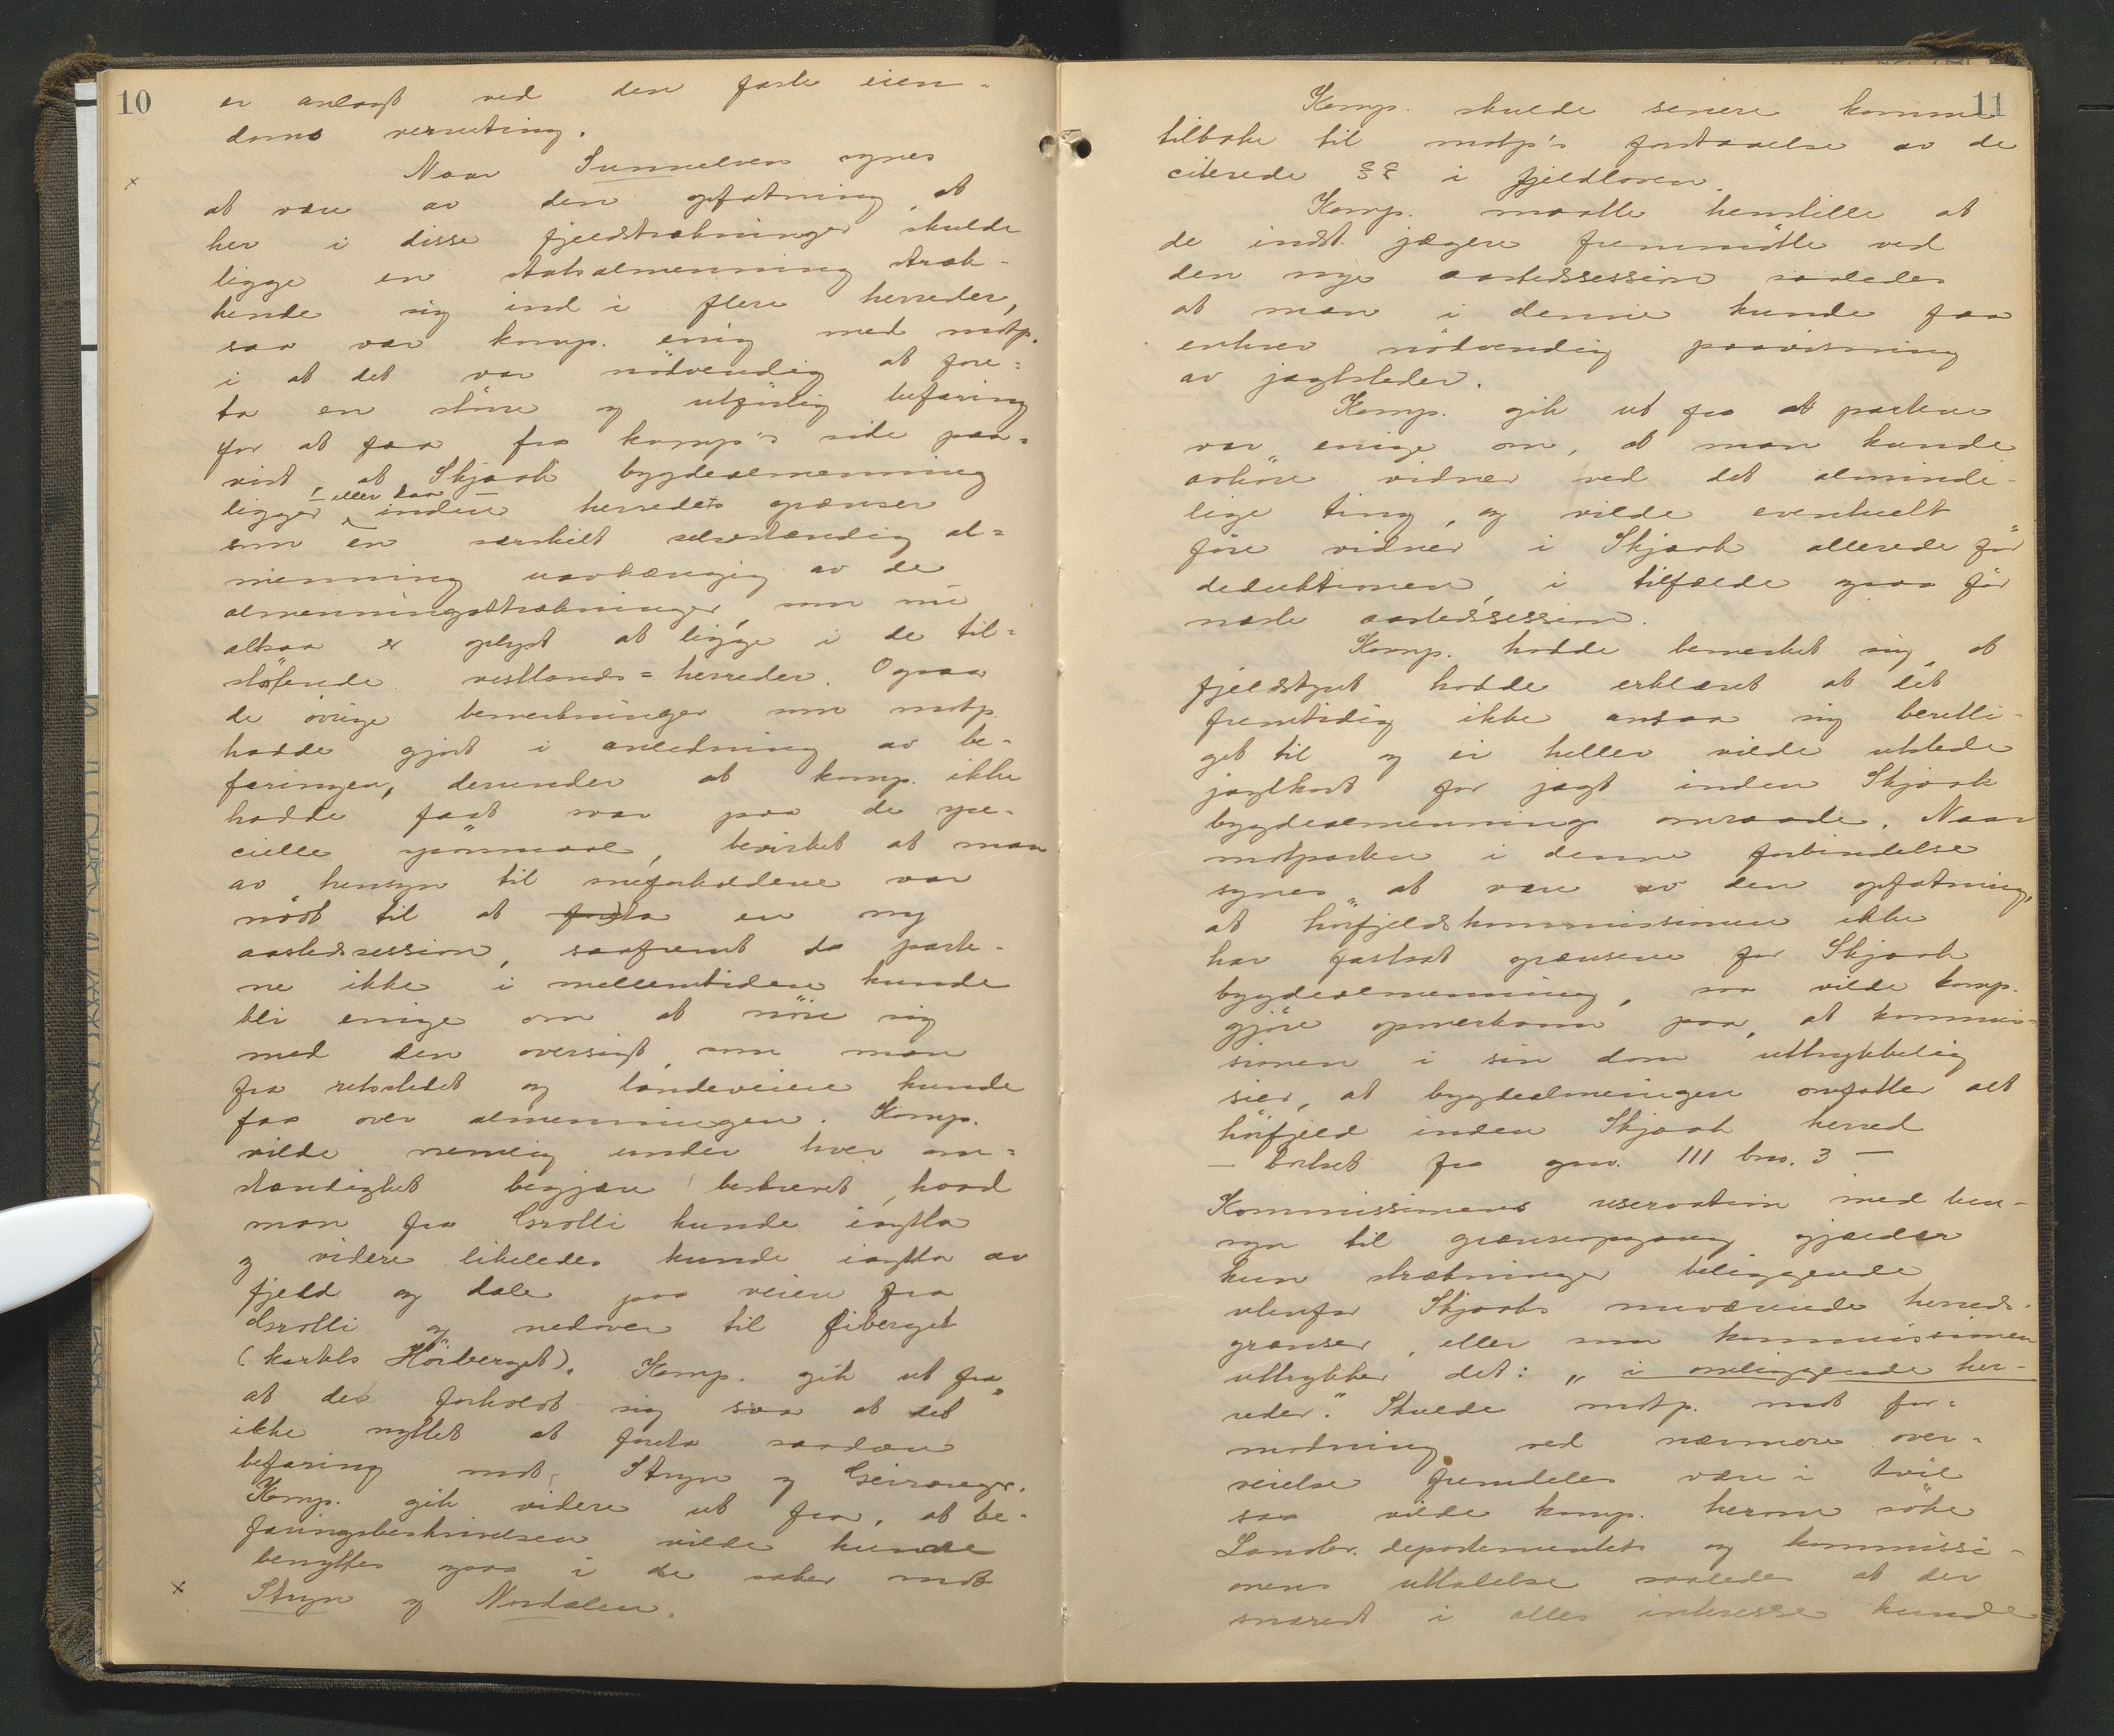 10
er anlagt ved den faste eien-
doms verneting.
Naar Sunnelven synes
at være av den opfatning, at
her i disse fjeldstrækninger skulde
ligge en statsalmenning stræk-
kende sig ind i flere herreder,
saa var komp. enig med motp.
i at det var nödvendig at fore=
ta en större og utförlig befaring
for at faa fra komp's side paa=
vist, at Skjaak bygdealmenning
ligger inden herredets grænser
- eller laa -
som en særskilt selvstændig al=
menning uavhængig av de
almenningsstrækninger, som nu
altsaa er oplyst at ligge i de til=
stötende vestlands=herreder. Ogsaa
de övrige bemerkninger som motp.
hadde gjort i anledning av be-
faringen, derunder at komp. ikke
hadde faat svar paa de spe-
cielle spörsmaal, bevirket at man
av hensyn til sneforholdene var
nödt til at foreta en ny
aastedssession, saafremt da parte-
ne ikke i mellemtiden kunde
bli enige om at nöie sig
med den oversigt, som man
fra retsstedet og landeveien kunde
faa over almenningen. Komp.
vilde nemlig under hver om=
stændighet begjære beskrevet, hvad
man fra Grotli kunde iagtta
og videre likeledes kunde iagtta av
fjeld og dale paa veien fra
Grotli og nedover til
(kartets Höiberget). Komp. gik ut fra,
at det forholdt sig saa at det
ikke nyttet at foreta saadan
befaring mot Stryn og Geiranger.
Komp. gik videre ut fra, at be-
faringsbeskrivelsen vilde kunde
benyttes ogsaa i de saker mot
Stryn og Nordalen.
11
Komp. skulde senere komme
tilbake til motp's forstaaelse av de
citerede §§ i fjeldloven.
Komp. maatte henstille at
de indst. jægere fremmötte ved
den nye aastedssession saaledes
at man i denne kunde faa
enhver nödvendig paavisning
av jagtsteder.
Komp. gik ut fra at partene
var enige om, at man kunde
avhöre vidner ved det alminde-
lige ting, og vilde eventuelt
före vidner i Skjaak allerede för
deduktionen, i tilfælde ogsaa för
næste aastedssession.
Komp. hadde bemerket sig, at
fjeldstyret hadde erklæret at det
fremtidig ikke ansaa sig beretti-
get til og ei heller vilde utstede
jagtkort for jagt inden Skjaak
bygdealmennings omraade. Naar
motparten i denne forbindelse
synes at være av den opfatning,
at höifjeldskommissionen ikke
har fastsat grænsene for Skjaak
bygdealmenning, saa vilde komp.
gjöre opmerksom paa, at kommis-
sionen i sin dom uttrykkelig
sier, at bygdealmeningen omfatter alt
höifjeld inden Skjaak herred
- bortset fra gnr. 111 bnr. 3 -
Kommissionens reservation med hen-
syn til grænseopgang gjælder
kun strækninger beliggende
utenfor Skjaaks nuværende herreds-
grænser, eller som kommissionen
uttrykker det: „i omliggende her-
reder." Skulde motp. mot for=
modning ved nærmere over-
veielse fremdeles være i tvil
saa vilde komp. herom söke
Landbr. departementets og kommissi-
onens uttalelse saaledes at der
snarest i alles interesse kunde